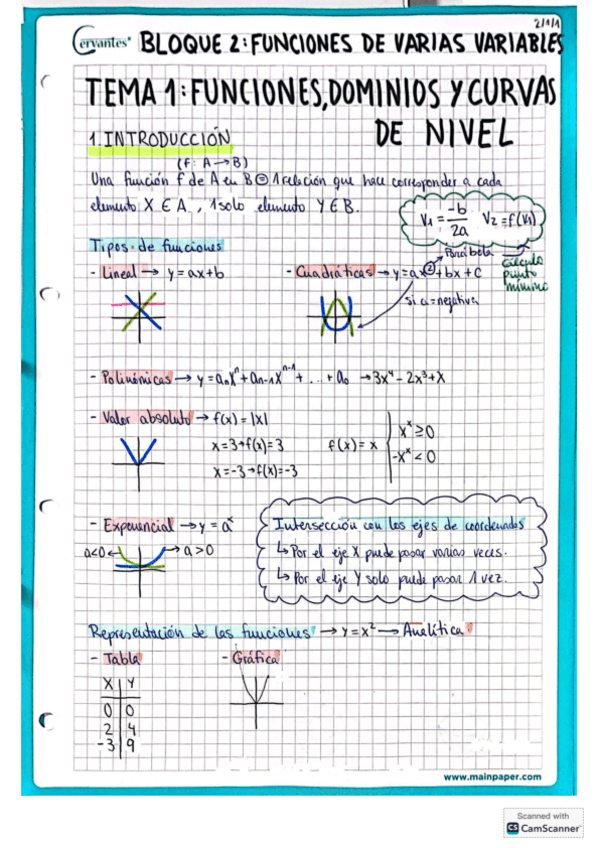 2/1/1
Cervantes BLOQUE 2: FUNCIONES DE VARIAS VARIABLES
TEMA 1: FUNCIONES, DOMINIOS Y CURVAS
DE NIVEL
1. INTRODUCCIÓN
(f: A→B)
Una función f de A en B ⊜ 1 relación que hace corresponder a cada
elemento X ∈ A, 1 solo elemento Y ∈ B.
V₁ = -b/2a V₂ = f(V₁)
cálculo punto mínimo
Tipos de funciones
- Lineal → y = ax+b
- Cuadráticas → y = ax²+bx+c
Parábola
si a = negativa
- Polinómicas → y = aₙxⁿ + aₙ₋₁xⁿ⁻¹ + ... + a₀ → 3x⁴ - 2x³ + x
- Valor absoluto → f(x) = |x|
x = 3 → f(x) = 3
x = -3 → f(x) = -3
f(x) = x
xˣ ≥ 0
-xˣ < 0
- Exponencial → y = aˣ
a<0 ←
→ a>0
Intersección con los ejes de coordenadas
↳ Por el eje X puede pasar varias veces.
↳ Por el eje Y solo puede pasar 1 vez.
Representación de las funciones → y = x² → Analítica
- Tabla
- Gráfica
X | Y
0 | 0
2 | 4
-3 | 9
www.mainpaper.com
Scanned with
CS CamScanner